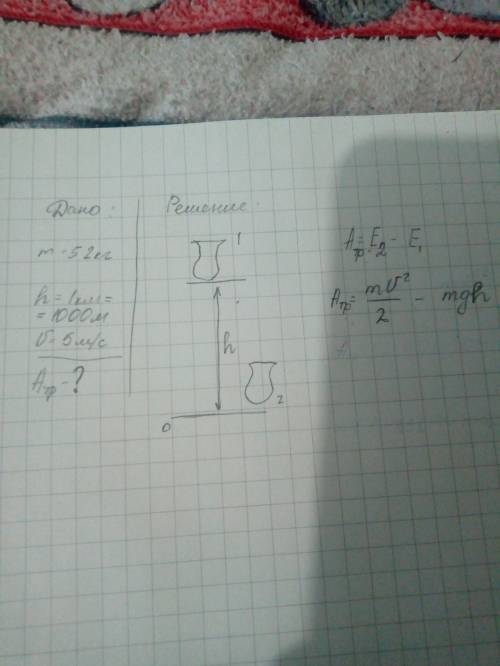 Дано:
m - 52кг
h = 1км =
= 1000м
V - 5м/с
Aтр - ?
Решение:
1
h
2
0
Aтр = E₂ - E₁
Aтр = mV²/2 - mgh